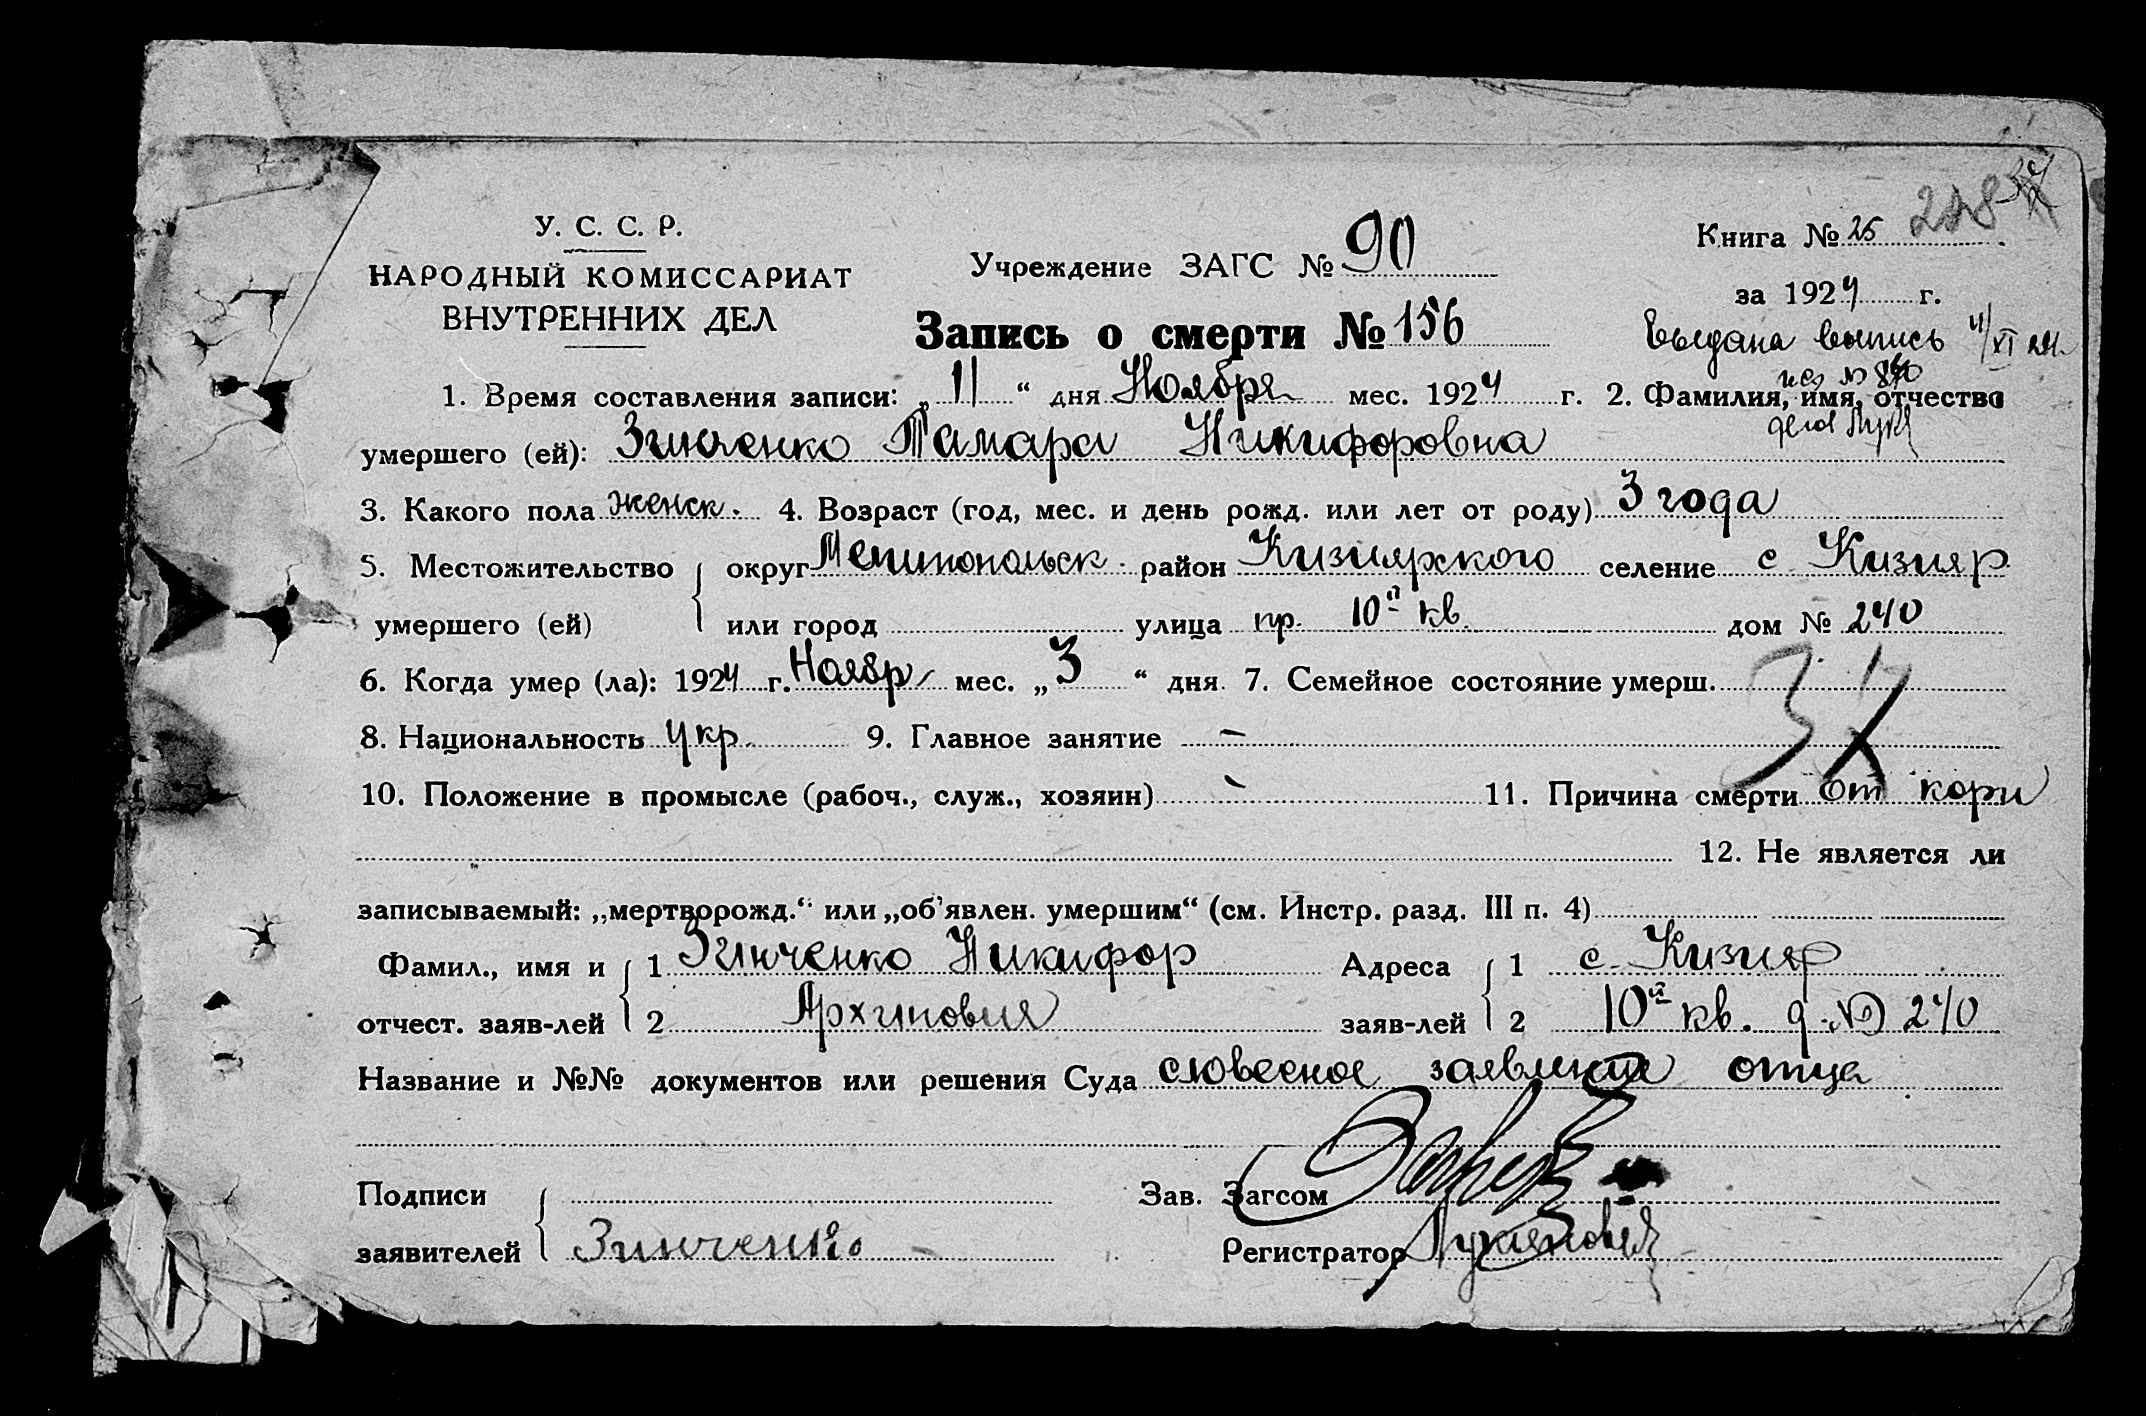 У. С. С. Р.
НАРОДНЫЙ КОМИССАРИАТ
ВНУТРЕННИХ ДЕЛ
Учреждение ЗАГС № 90
Книга № 25
за 1924 г.
Запись о смерти № 156
Выдана выпись 11/XI
1. Время составления записи: „11“ дня Ноября мес. 1924 г. 2. Фамилия, имя, отчество
умершего (ей): Зинченко Тамара Никифоровна
3. Какого пола женск. 4. Возраст (год, мес. и день рожд. или лет от роду) 3 года
5. Местожительство округ Мелитопольск. район Кизиярского селение с. Кизияр
умершего (ей) или город улица пр. 10й кв. дом № 240
6. Когда умер (ла): 1924 г. Ноябр мес. „3“ дня. 7. Семейное состояние умерш.
8. Национальность укр. 9. Главное занятие –
10. Положение в промысле (рабоч., служ., хозяин) - 11. Причина смерти от кори
12. Не является ли
записываемый: „мертворожд.“ или „об’явлен. умершим“ (см. Инстр. разд. III п. 4)
Фамил., имя и 1 Зинченко Никифор Адреса 1 с. Кизияр
отчест. заяв-лей 2 Архипович заяв-лей 2 10й кв. д. № 240
Название и №№ документов или решения Суда словесное заявление отца
Подписи Зав. Загсом
заявителей Зинченко Регистратор